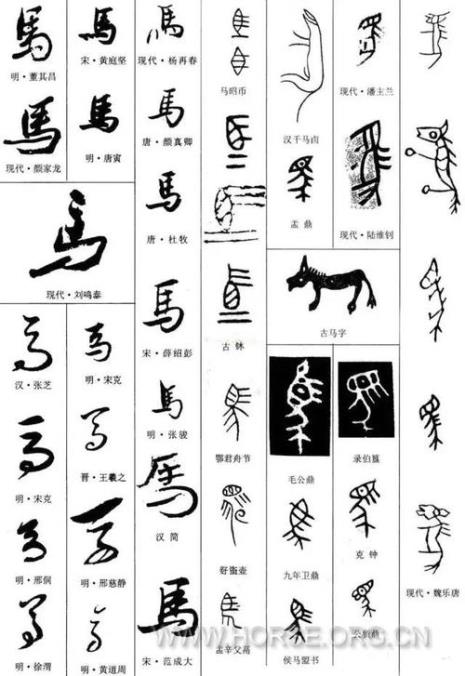 馬
明·董其昌
馬
现代·颜家龙
馬
宋·黄庭坚
馬
明·唐寅
馬
现代·刘鸣泰
馬
汉·张芝
馬
明·宋克
馬
明·邢侗
馬
明·徐渭
馬
明·宋克
馬
晋·王羲之
馬
明·邢慈静
馬
明·黄道周
馬
现代·杨再春
馬
唐·颜真卿
馬
唐·杜牧
馬
宋·薛绍彭
馬
明·张骏
馬
汉简
馬
宋·范成大
马昭币
古鉨
鄂君舟节
盂辛父鬲
汉干马卣
盂鼎
现代·潘主兰
现代·陆维钊
古马字
毛公鼎
九年卫鼎
侯马盟书
录伯簋
克钟
现代·魏乐唐
WWW.HORSE.ORG.CN